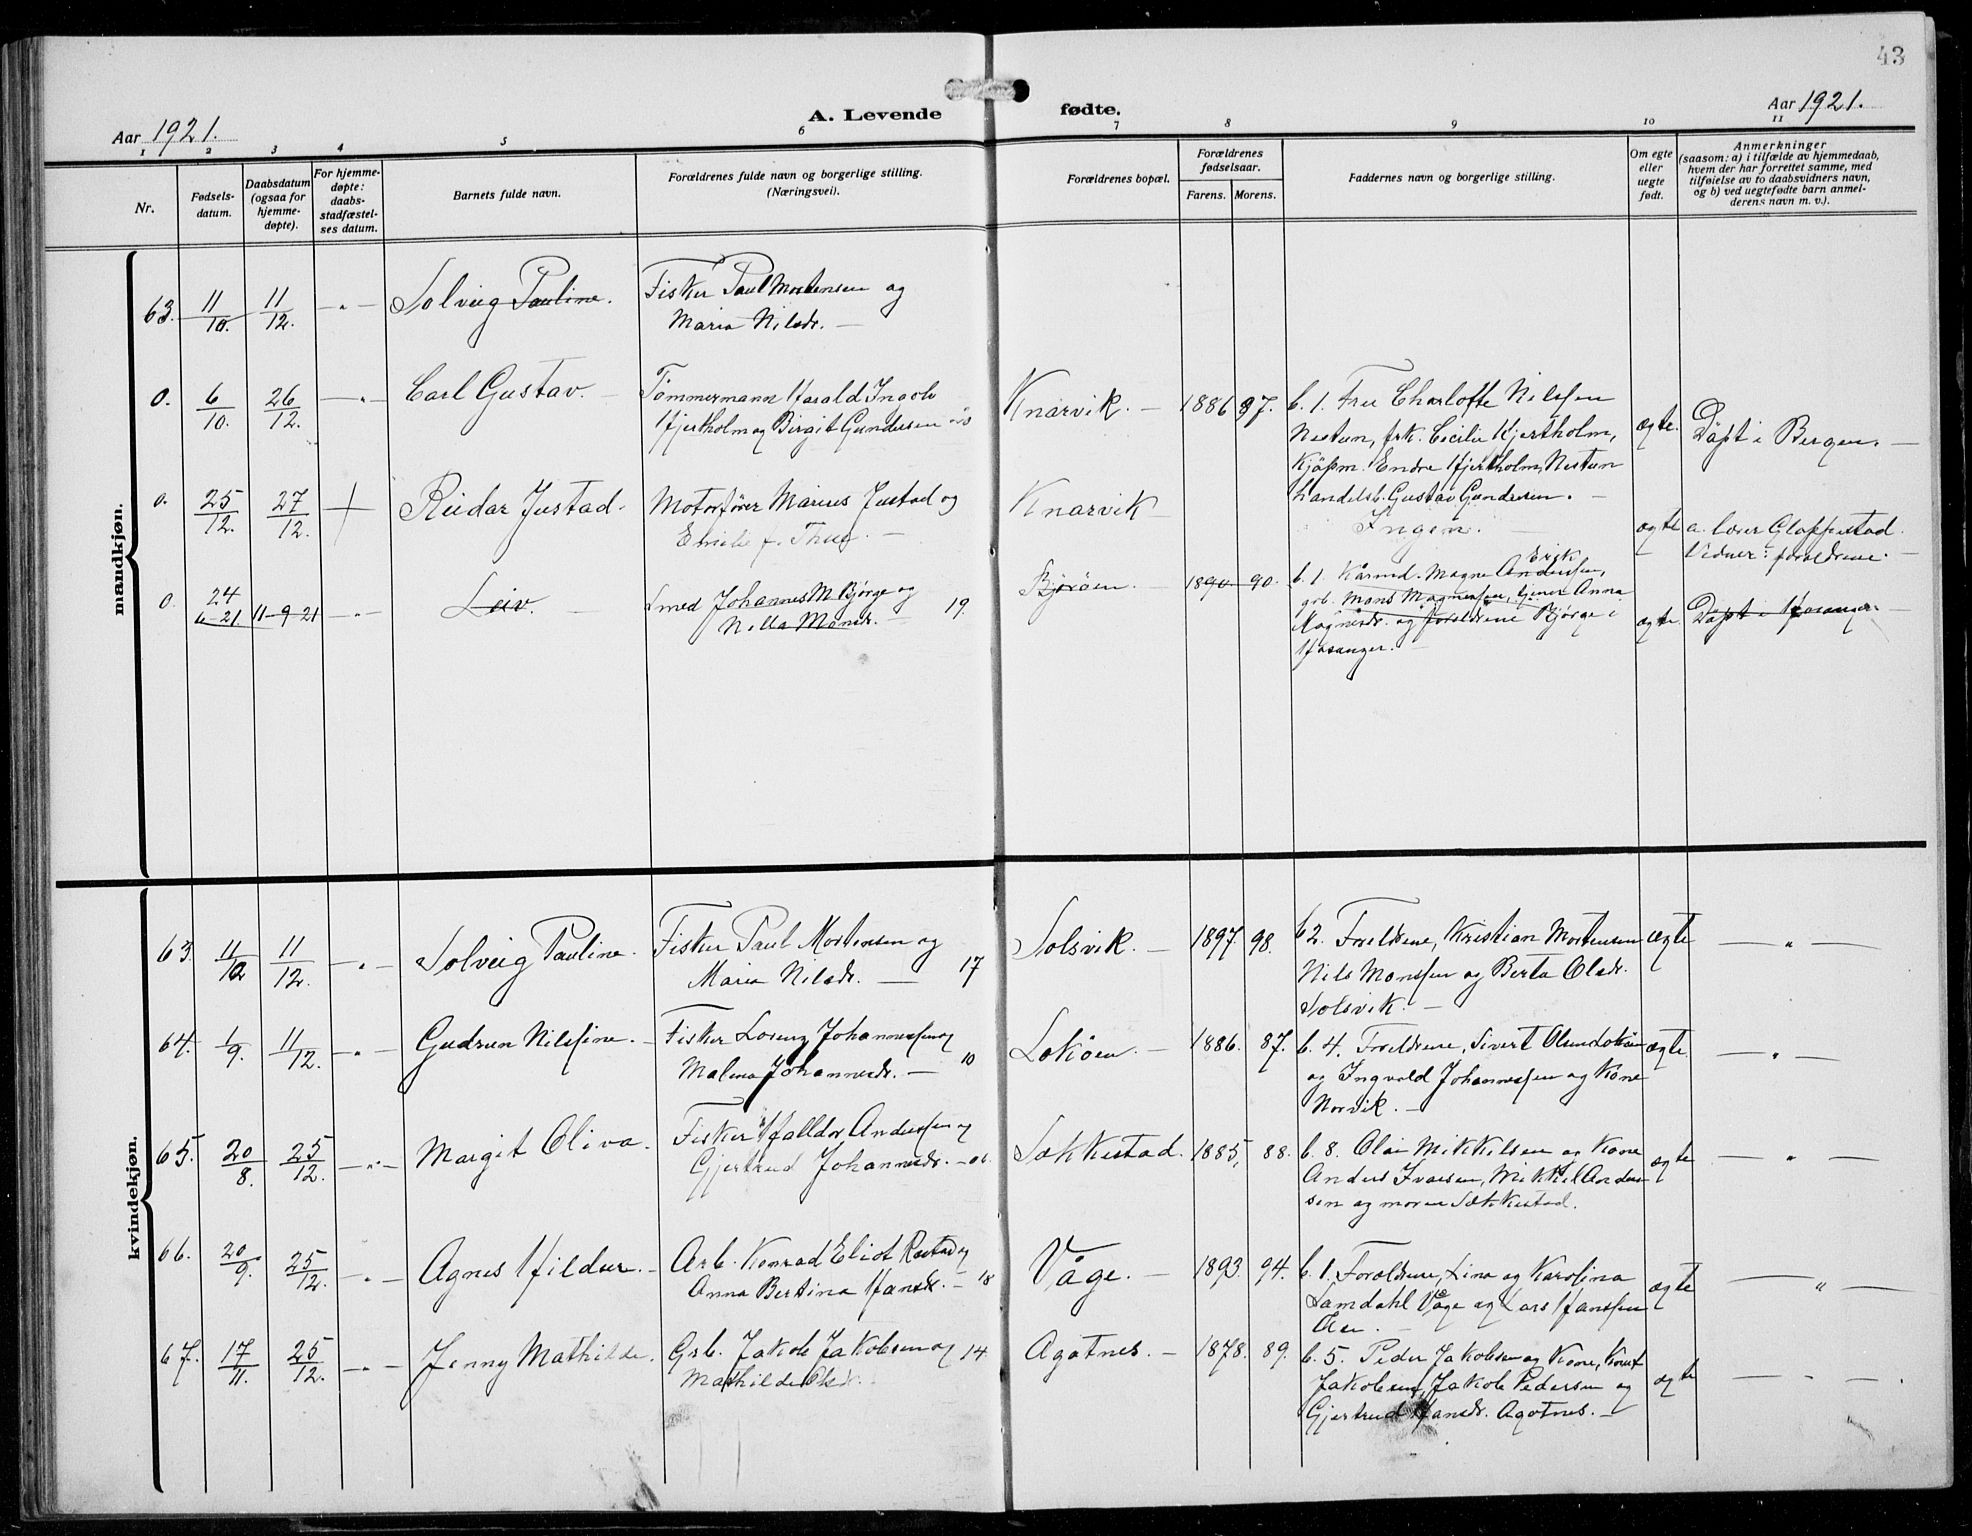 43
Aar 1921.
A. Levende fødte.
Aar 1921.
1 2 3 4 5 6 7 8 9 10 11
Nr.
Fødsels-
datum.
Daabsdatum
(ogsaa for
hjemme-
døpte).
For hjemme-
døpte:
daabs-
stadfæstel-
ses datum.
Barnets fulde navn.
Forældrenes fulde navn og borgerlige stilling.
(Næringsvei).
Forældrenes bopæl.
Forældrenes
fødselsaar.
Farens. Morens.
Faddernes navn og borgerlige stilling.
Om egte
eller
uegte
født.
Anmerkninger
(saasom: a) i tilfælde av hjemmedaab,
hvem der har forrettet samme, med
tilføielse av to daabsvidners navn,
og b) ved uegtefødte barn anmel-
derens navn m. v.).
mandkjøn.
63. 11/10. 11/12. — " — Solveig Pauline. Fisker Paul Mortensen og
Maria Nilsdr. —
0. 6/10. 26/12. — " — Carl Gustav. — Tømmermann Harald Ingolv
Hjertholm og Birgit Gundersen Knarvik. — 1886 97. b. 1. Fru Charlotte Nilssen
Nestun, frk. Cecilie Hjertholm,
Kjøpm. Endre Hjertholm, Nestun
handelsb. Gustav Gundersen. — ægte. Døpt i Bergen. —
0. 25/12. 27/12. + Reidar Justad. Motorfører Marius Justad og
Emilie f. — Knarvik — Ingen. — ægte a. lærer Gloppestad.
Vidner: forældrene. —
0. 24/6-21 11-9-21 — " — Leiv. — Smed Johannes M. Bjørge og
Nilla Monsdr. — 19. Bjørøen. — 1890 90. b. 1. Magne Erik Anderssen,
grb. Mons Magnessen, Anna
Magnesdr. og forældrene Bjørge i
Hosanger. — ægte Døpt i Hosanger. —
kvindekjøn.
63. 11/10 11/12. — " — Solveig Pauline. Fisker Paul Mortensen og
Maria Nilsdr. — 17 Solsvik. — 1897. 98. b 2. Foreldrene, Kristian Mortensen
Nils Monssen og Berta Olsdr.
Solsvik. — ægte — " —
64. 1/9. 11/12. — " — Gudrun Nilsine. — Fisker Lorenz Johannessen og
Malena Johannesdr. — 10 Lokøen. — 1886. 87. b. 4. Foreldrene, Sivert Olsen Lokøen
og Ingvald Johannessen og Kone
Norvik. — ægte — " —
65. 20/8. 25/12. — " — Margit Oliva. Fisker Halldor Anderssen og
Gjertrud Johannesdr. — 06. Søkkestad. 1885, 88. b. 8. Olai Mikkelsen og Kone
Anders Ivarsen, Mikkel Ander-
sen og moren Søkkestad. ægte — " —
66. 20/9. 25/12. — " — Agnes Hildur. — Arb. Konrad Eliot og
Anna Bertina Hansdr. — 18 Våge. — 1893. 94. b. 1. Foreldrene, Lina og Karolina
Lamdahl Våge og Lars Hanssen
— ægte — " —
67. 17/11. 25/12. — " — Jenny Mathilde. Grb. Jakob Jakobsen og 14.
Mathilde Olsdr. Agotnes. — 1878. 89. b. 5. Peder Jakobsen og Kone, Knut
Jakobsen, Jakob Pedersen og
Gjertrud Hansdr. Agotnes. — ægte — " —